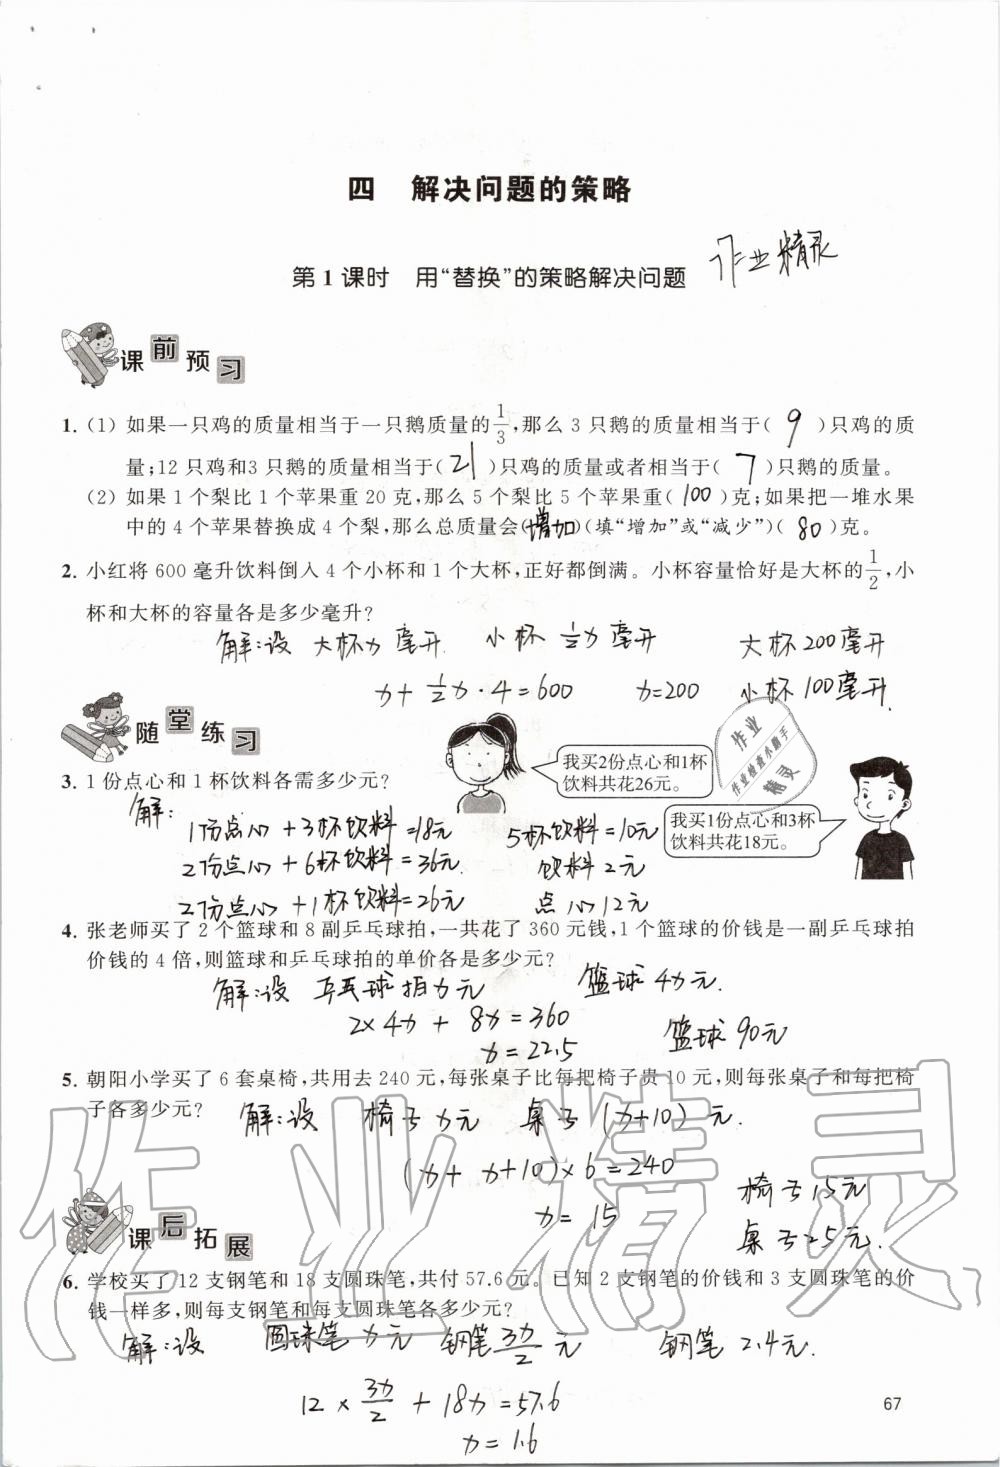 四 解决问题的策略
第1课时 用“替换”的策略解决问题
作业精灵
课前预习
1. (1) 如果一只鸡的质量相当于一只鹅质量的1/3,那么3只鹅的质量相当于( 9 )只鸡的质
量;12只鸡和3只鹅的质量相当于( 21 )只鸡的质量或者相当于( 7 )只鹅的质量。
(2) 如果1个梨比1个苹果重20克,那么5个梨比5个苹果重( 100 )克;如果把一堆水果
中的4个苹果替换成4个梨,那么总质量会(增加)(填“增加”或“减少”)( 80 )克。
2. 小红将600毫升饮料倒入4个小杯和1个大杯,正好都倒满。小杯容量恰好是大杯的1/2,小
杯和大杯的容量各是多少毫升?
解:设 大杯x毫升 小杯1/2x毫升 大杯200毫升
x+1/2x·4=600 x=200 小杯100毫升
随堂练习
3. 1份点心和1杯饮料各需多少元?
我买2份点心和1杯
饮料共花26元。
我买1份点心和3杯
饮料共花18元。
作业
作业检查小助手
精灵
解:
1份点心+3杯饮料=18元 5杯饮料=10元
2份点心+6杯饮料=36元 饮料2元
2份点心+1杯饮料=26元 点心12元
4. 张老师买了2个篮球和8副乒乓球拍,一共花了360元钱,1个篮球的价钱是一副乒乓球拍
价钱的4倍,则篮球和乒乓球拍的单价各是多少元?
解:设 乒乓球拍x元 篮球4x元.
2×4x+8x=360
x=22.5 篮球90元
5. 朝阳小学买了6套桌椅,共用去240元,每张桌子比每把椅子贵10元,则每张桌子和每把椅
子各多少元?
解:设 椅子x元 桌子(x+10)元.
(x+x+10)×6=240
x=15
椅子15元
桌子25元.
课后拓展
6. 学校买了12支钢笔和18支圆珠笔,共付57.6元。已知2支钢笔的价钱和3支圆珠笔的价
钱一样多,则每支钢笔和每支圆珠笔各多少元?
解:设 圆珠笔x元 钢笔3x/2元 钢笔2.4元.
12×3x/2+18x=57.6
x=1.6
67
作业精灵